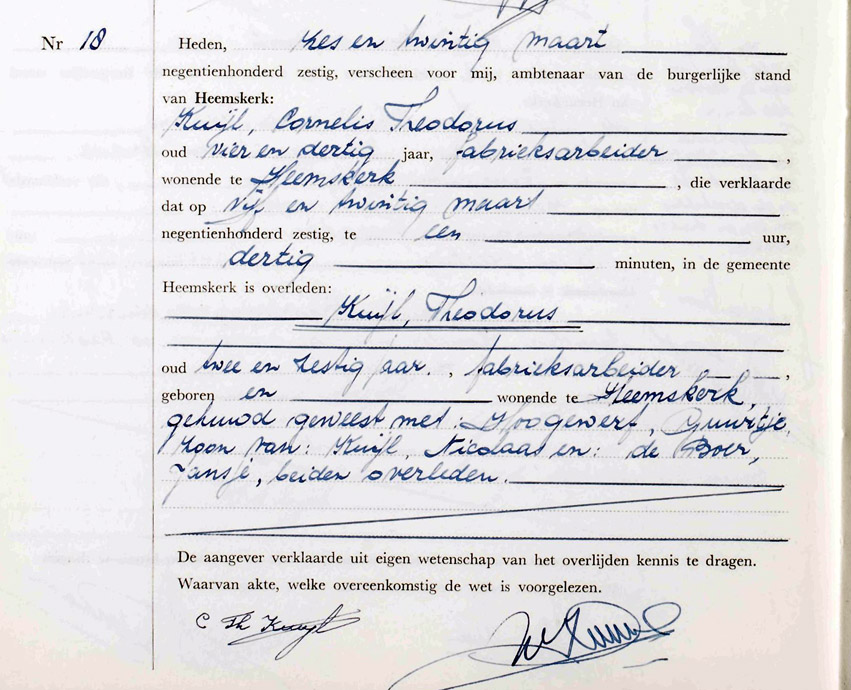 Nr 18
Heden, zes en twintig maart
negentienhonderd zestig, verscheen voor mij, ambtenaar van de burgerlijke stand
van Heemskerk:
Kuijl, Cornelis Theodorus
oud vier en dertig jaar, fabrieksarbeider ,
wonende te Heemskerk , die verklaarde
dat op vijf en twintig maart
negentienhonderd zestig, te een uur,
dertig minuten, in de gemeente
Heemskerk is overleden:
Kuijl, Theodorus
oud twee en zestig jaar. , fabrieksarbeider ,
geboren en wonende te Heemskerk,
gehuwd geweest met: Hoogewerf, Guurtje,
zoon van: Kuijl, Nicolaas en: de Boer,
Jansje, beiden overleden.
De aangever verklaarde uit eigen wetenschap van het overlijden kennis te dragen.
Waarvan akte, welke overeenkomstig de wet is voorgelezen.
C Th Kuijl